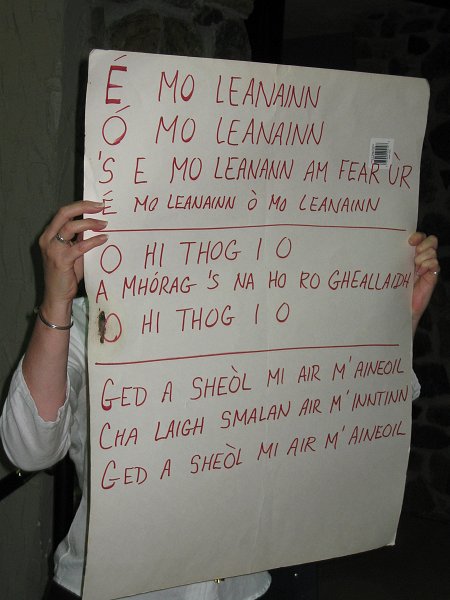 É MO LEANAINN
Ó MO LEANAINN
'S E MO LEANANN AM FEAR ÙR
É MO LEANAINN Ò MO LEANAINN
O HI THOG I O
A MHÓRAG 'S NA HO RO GHEALLAIDH
O HI THOG I O
GED A SHEÒL MI AIR M'AINEOIL
CHA LAIGH SMALAN AIR M'INNTINN
GED A SHEÒL MI AIR M'AINEOIL